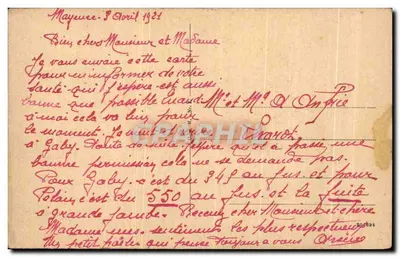 Mayence 3 Avril 1931
Bien chers Monsieur et Madame
Je vous envoie cette carte
pour m informer de votre
santé qui j'espère est aussi
bonne que possible quand
à moi cela va bien pour
le moment. Je
Mr et Me A Onfrie
à Gaby. a passé une
bonne permission, cela ne se demande pas.
Pour Gaby c'est du 348 au jus et pour
c'est du 550 au jus et la fuite
à grande jambe. Recevez cher Monsieur et chère
Madame mes sentiments les plus respectueux
Un petit qui pense toujours à vous